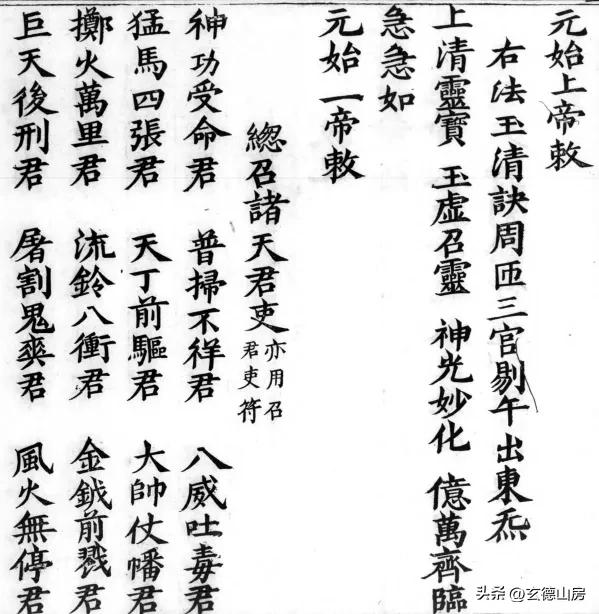 元始上帝敕
右法玉清訣周匝三官剔午出東炁
上清靈寶 玉虛召靈 神光妙化 億萬齊臨
急急如
元始一帝敕
總召諸天君吏亦用召君吏符
神功受命君 普掃不祥君 八威吐毒君
猛馬四張君 天丁前驅君 大帥仗幡君
擲火萬里君 流鈴八衝君 金鉞前戮君
巨天後刑君 屠割鬼爽君 風火無停君
头条@玄德山房